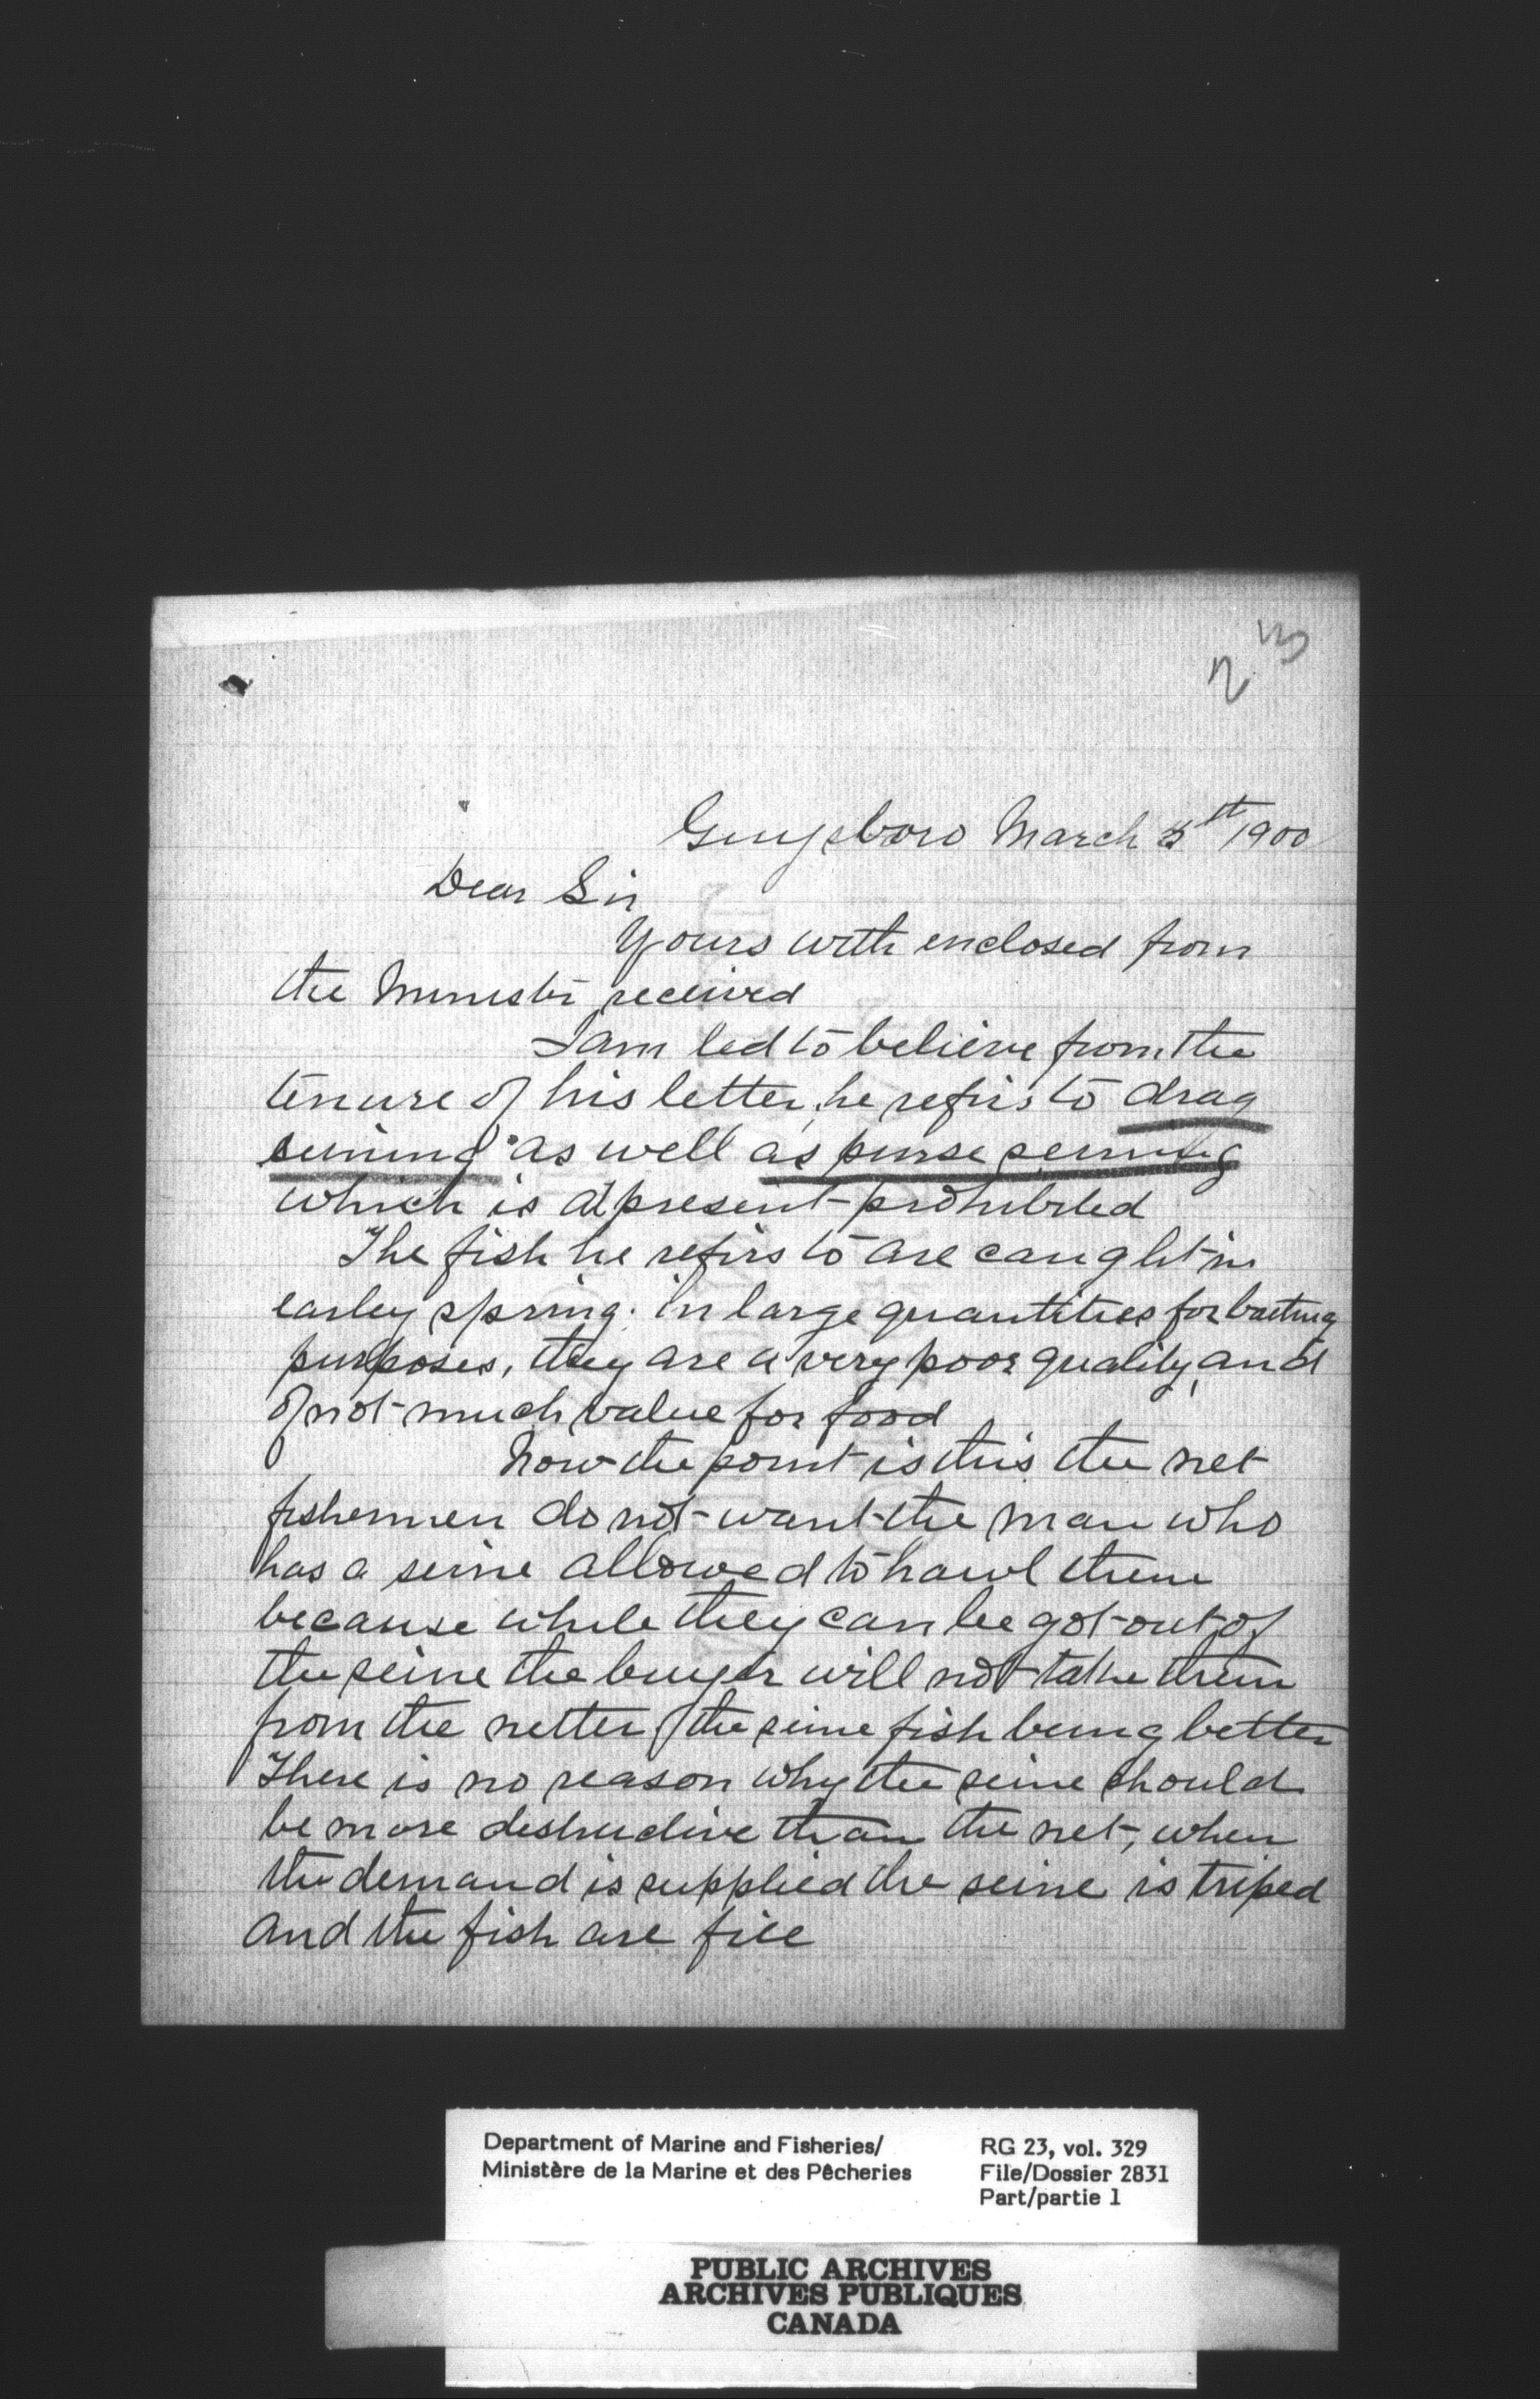 23
Guysboro March 5th 1900
Dear Sir
Yours with enclosed from
the Minister received
I am led to believe from the
tenure of his letter, he refers to drag
seining as well as purse seining
which is at present prohibited
The fish he refers to are caught in
earley spring. in large quantities for baiting
purposes, they are a very poor quality, and
of not much value for food
Now the point is this the net
fishermen do not want the man who
has a seine allowed to hawl them
because while they can be got out of
the seine the buyer will not take them
from the netter, the seine fish being better
There is no reason why the seine should
be more destructive than the net, when
the demand is supplied the seine is triped
and the fish are free
Department of Marine and Fisheries/
Ministère de la Marine et des Pêcheries
RG 23, vol. 329
File/Dossier 2831
Part/partie 1
PUBLIC ARCHIVES
ARCHIVES PUBLIQUES
CANADA